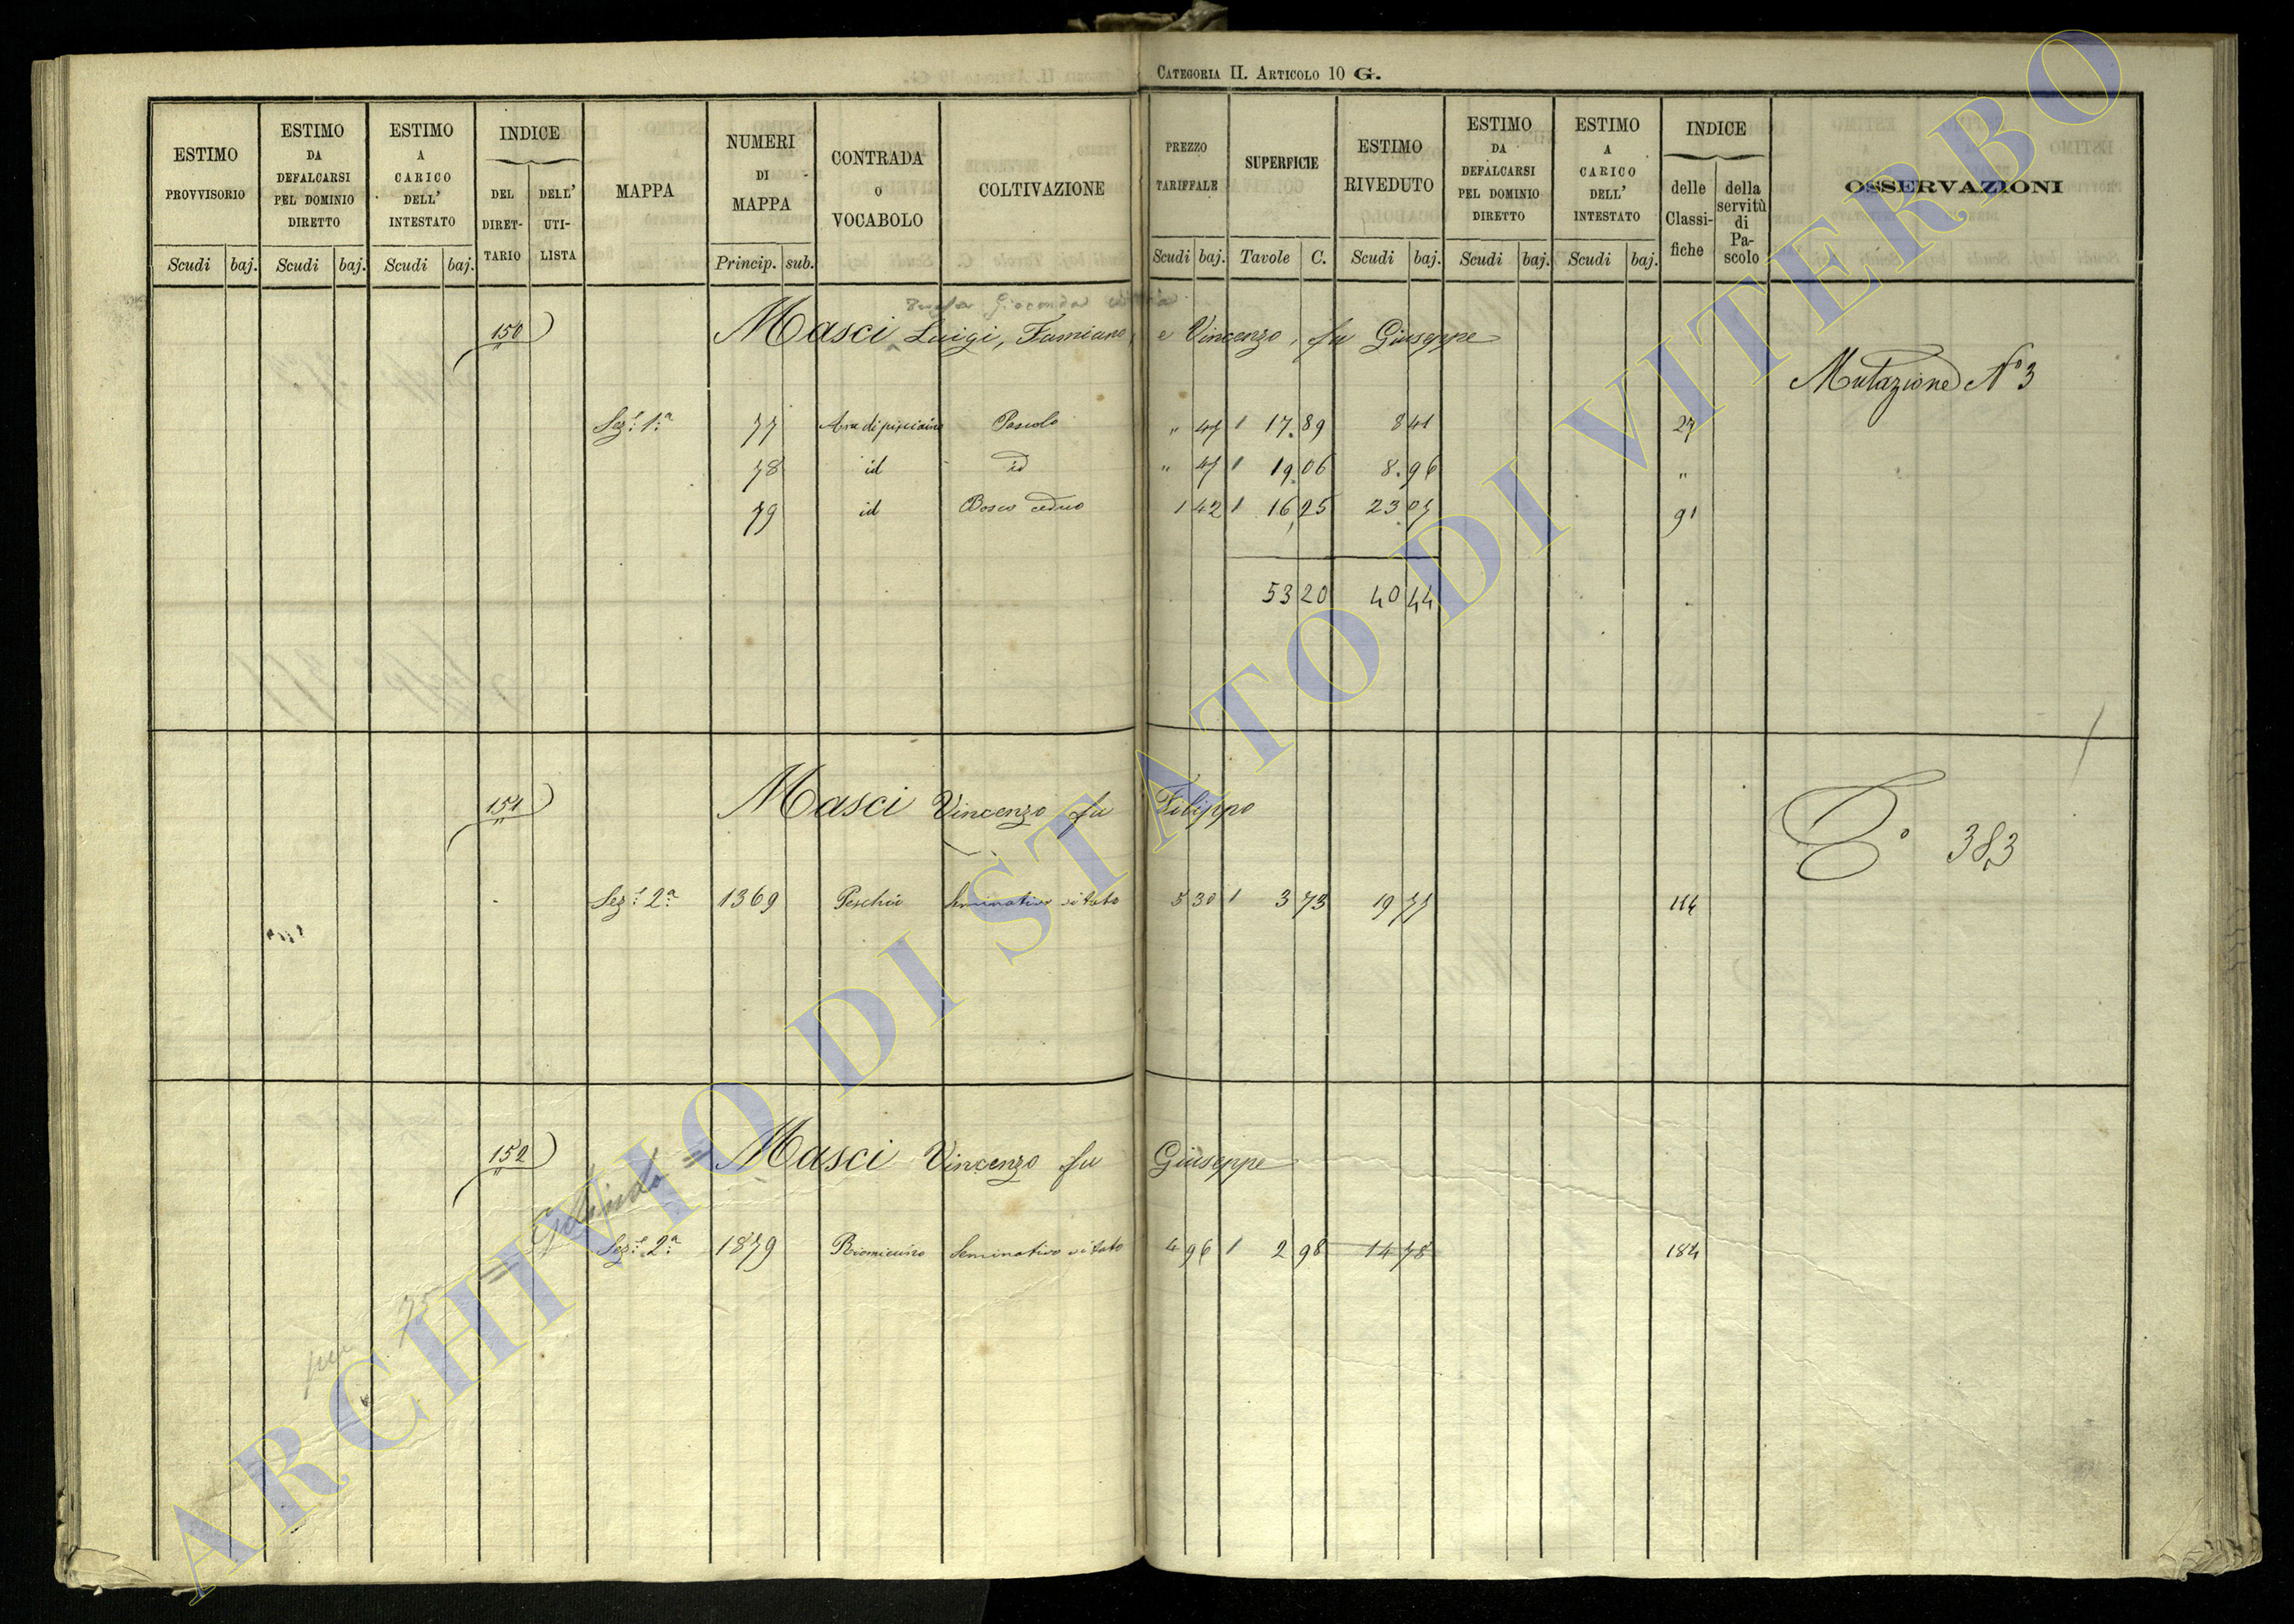 CATEGORIA II. ARTICOLO 10 G.
ESTIMO PROVVISORIO
Scudi baj.
ESTIMO DA DEFALCARSI PEL DOMINIO DIRETTO
Scudi baj.
ESTIMO A CARICO DELL' INTESTATO
Scudi baj.
INDICE
DEL DIRET-TARIO
DELL' UTI-LISTA
MAPPA
NUMERI DI MAPPA
Princip. sub.
CONTRADA O VOCABOLO
COLTIVAZIONE
PREZZO TARIFFALE
Scudi baj.
SUPERFICIE
Tavole C.
ESTIMO RIVEDUTO
Scudi baj.
ESTIMO DA DEFALCARSI PEL DOMINIO DIRETTO
Scudi baj.
ESTIMO A CARICO DELL' INTESTATO
Scudi baj.
INDICE
delle Classi-fiche
della servitù di Pa-scolo
OSSERVAZIONI
150) Masci Luigi, Famiano, e Vincenzo, fu Giuseppe
Mutazione N° 3
Sez.e 1.a 77 Pascolo " 47 17.89 8 41 27
78 id id " 47 19.06 8.96 "
79 id Bosco ceduo 1 42 16,25 23 07 91
53 20 40 44
151) Masci Vincenzo fu Filippo
383
Sez.e 2.a 1369 Peschio Seminativo vitato 5 30 3 73 19 77 114
152) Masci Vincenzo fu Giuseppe
Sez.e 2.a 1879 Seminativo vitato 4 96 2 98 14 78 184
per 75
ARCHIVIO DI STATO DI VITERBO